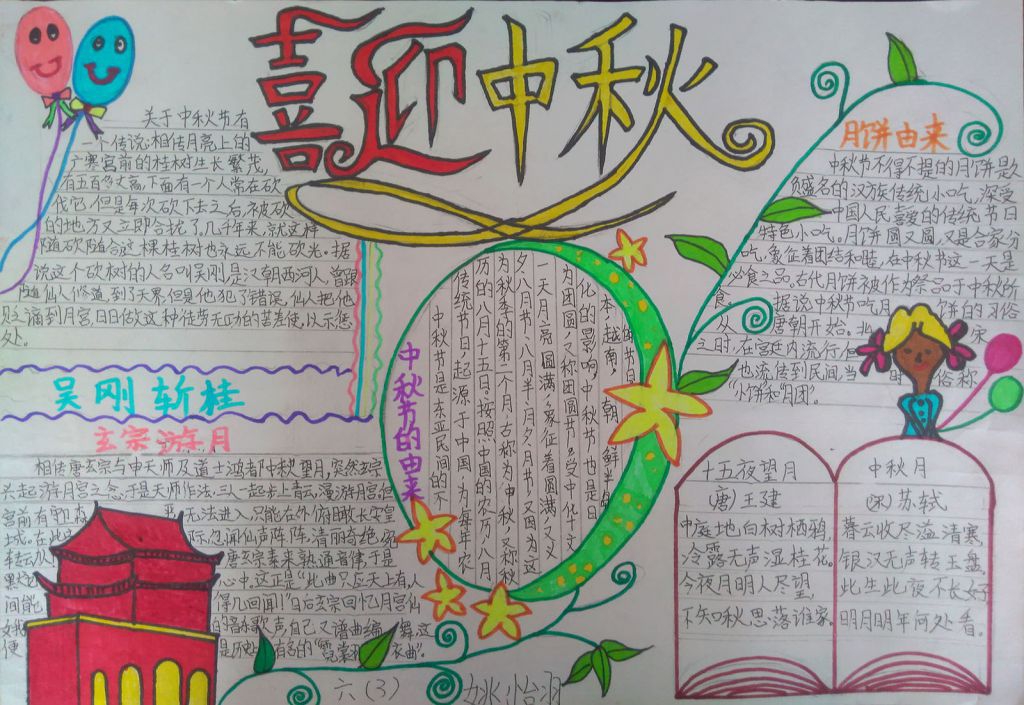 喜迎中秋
关于中秋节有
一个传说:相传月亮上的
广寒宫前的桂树生长繁茂,
有五百多丈高,下面有一个人常在砍
伐它,但是每次砍下去之后,被砍
的地方又立即合拢了,几千年来,就这样
随砍随合,这棵桂树也永远不能砍光。据
说这个砍树的人名叫吴刚,是汉朝西河人,曾跟
随仙人修道,到了天界,但是他犯了错误,仙人把他
贬谪到月宫,日日做这种徒劳无功的苦差使,以示惩
处。
吴刚斩桂
玄宗游月
相传唐玄宗与申天师及道士鸿都中秋望月,突然玄宗
兴起游月宫之念,于是天师作法,三人一起步上青云,漫游月宫,但
宫前有守卫森 无法进入,只能在外俯瞰长安皇
城,在此 际,忽闻仙声阵阵,清丽奇绝,宛
转动人 唐玄宗素来熟通音律,于是
默 心中,这正是“此曲只应天上有,人
间能 得几回闻!”日后玄宗回忆月宫仙
娥 的音乐歌声,自己又谱曲编舞,这
便 是历史上有名的“霓裳羽衣曲”。
中秋节的由来
中秋节是东亚民间的
传统节日,起源于中国,为每年农
历的八月十五日。按照中国的农历,八月
为秋季的第二个月,古称为中秋,又称秋
夕、八月节、八月半、月夕、月节,又因为这
一天月亮圆满,象征着团圆,又
为团圆,又称团圆节。受中华文
化的影响,中秋节也是日
本、越南、朝鲜半
月饼由来
中秋节不得不提的月饼是久
负盛名的汉族传统小吃,深受
中国人民喜爱的传统节日
特色小吃。月饼圆又圆,又是合家分
吃,象征着团结和睦,在中秋节这一天是
必食之品。古代月饼被作为祭品于中秋所
食。据说中秋节吃月饼的习俗
从唐朝开始。北宋
之时,在宫廷内流行,但
也流传到民间,当时俗称
“小饼”和“月团”。
十五夜望月
(唐)王建
中庭地白树栖鸦,
冷露无声湿桂花。
今夜月明人尽望,
不知秋思落谁家。
中秋月
(宋)苏轼
暮云收尽溢清寒,
银汉无声转玉盘。
此生此夜不长好,
明月明年何处看。
六(3) 姚怡羽